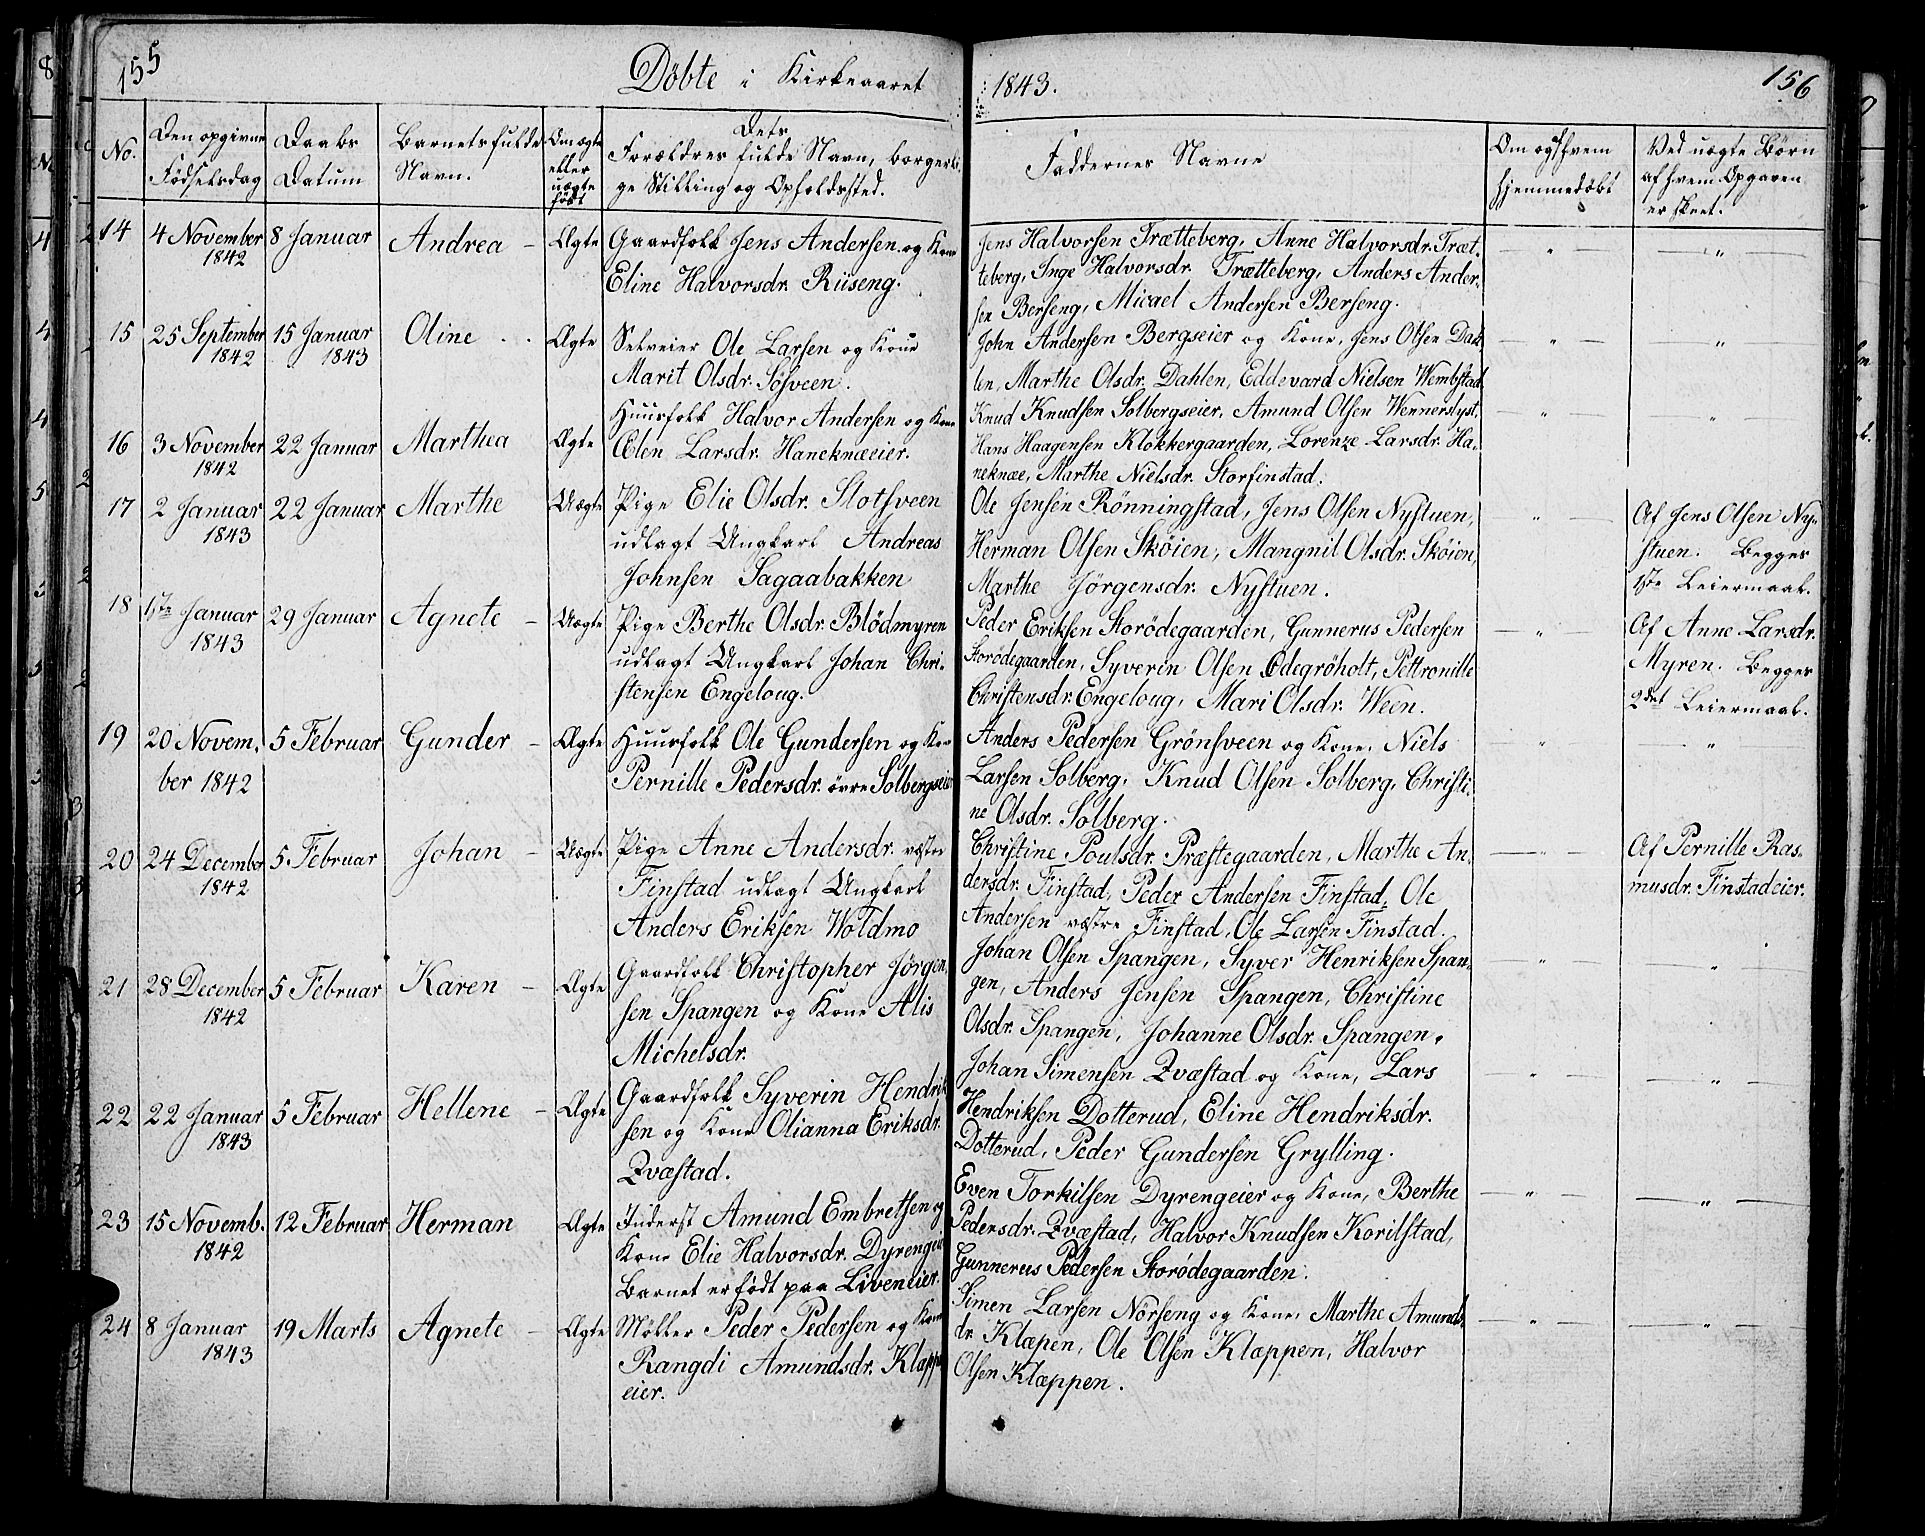 155
Döbte i Kirkeaaret
1843.
156
No.
Den opgivne
Födselsdag
Daabs
Datum
Barnets fulde
Navn.
Om ægte
eller
uægte
födt
Dets
Forældres fulde Navn, borgerli-
ge Stilling og Opholdssted.
Faddernes Navne
Om og af hvem
hjemmedöbt
Ved uægte Børn
af hvem Opgaven
er skeet.
14 4 November 8 Januar Andrea - Ægte Gaardfolk Jens Andersen og Kone
1842
Eline Halvorsdr. Riiseng.
Jens Halvorsen Trætteberg, Anne Halvorsdr. Træt-
teberg, Inge Halvorsdr. Trætteberg, Anders Ander-
sen Berseng, Micael Andersen Berseng.
15 25 September 15 Januar Oline . . Ægte Selveier Ole Larsen og Kone
1842 1843
Marit Olsdr. Sösveen.
John Andersen Bergseier og Kone, Jens Olsen Dah-
len, Marthe Olsdr. Dahlen, Eddevard Nielsen Wembstad
Huusfolk Halvor Andersen og Kone
16 3 November 22 Januar Marthea Ægte Olen Larsdr. Haneknæeier.
1842
Knud Knudsen Solbergseier, Amund Olsen Wennerslyst,
Hans Haagensen Klokkergaarden, Lorenze Larsdr. Ha-
neknæe, Marthe Nielsdr. Storfinstad.
17 2 Januar 22 Januar Marthe Uægte Pige Elie Olsdr. Slotsveen
1843
udlagt Ungkarl Andreas
Johnsen Sagaabakken
Ole Jensen Rönningstad, Jens Olsen Nystuen,
Herman Olsen Sköien, Mangnil Olsdr. Sköien,
Marthe Jörgensdr. Nystuen.
Af Jens Olsen Ny-
stuen. Begges
1ste Leiermaal.
18 1ste Januar 29 Januar Agnete - Uægte Pige Berthe Olsdr. Blödmyren
1843
udlagt Ungkarl Johan Chri-
stensen Engeloug.
Peder Eriksen Storödegaarden, Gunnerus Pedersen
Storödegaarden, Syverin Olsen Ödegröholt, Pettronille
Christensdr. Engeloug, Mari Olsdr. Ween.
Af Anne Larsdr.
Myren. Begges
2det Leiermaal.
19 20 Novem- 5 Februar Gunder - Ægte Huusfolk Ole Gundersen og Kone
ber 1842
Pernille Pedersdr. övre Solbergseier
Anders Pedersen Grönsveen og Kone, Niels
Larsen Solberg, Knud Olsen Solberg, Christi-
ne Olsdr. Solberg.
20 24 December 5 Februar Johan - Uægte Pige Anne Andersdr. vestre
1842
Finstad udlagt Ungkarl
Anders Eriksen Woldmo
Christine Poulsdr. Præstegaarden, Marthe An-
dersdr. Finstad, Peder Andersen Finstad, Ole
Andersen vestre Finstad, Ole Larsen Finstad.
Af Pernille Ras-
musdr. Finstadeier.
21 28 December 5 Februar Karen - Ægte Gaardfolk Christopher Jörgen-
1842
sen Spangen og Kone Alis
Michelsdr.
Johan Olsen Spangen, Syver Henriksen Span-
gen, Anders Jensen Spangen, Christine
Olsdr. Spangen, Johanne Olsdr. Spangen.
22 22 Januar 5 Februar Hellene - Ægte Gaardfolk Syverin Hendrik-
1843
sen og Kone Olianna Eriksdr.
Qvæstad.
Johan Simensen Qvæstad og Kone, Lars
Hendriksen Dotterud, Eline Hendriksdr.
Dotterud, Peder Gundersen Grylling.
23 15 Novemb. 12 Februar Herman Ægte Inderst Amund Embretsen og
1842
Kone Elie Halvorsdr. Dyrengeier
Barnet er födt paa Liveneier.
Even Torkilsen Dyrengeier og Kone, Berthe
Pedersdr. Qvæstad, Halvor Knudsen Korilstad,
Gunnerus Pedersen Storödegaarden.
24 8 Januar 19 Marts Agnete - Ægte Möller Peder Pedersen og Kone
1843
Rangdi Amundsdr. Klappe-
eier.
Simen Larsen Nörseng og Kone, Marthe Amunds-
dr. Klæpen, Ole Olsen Klæppen, Halvor
Olsen Klæppen.